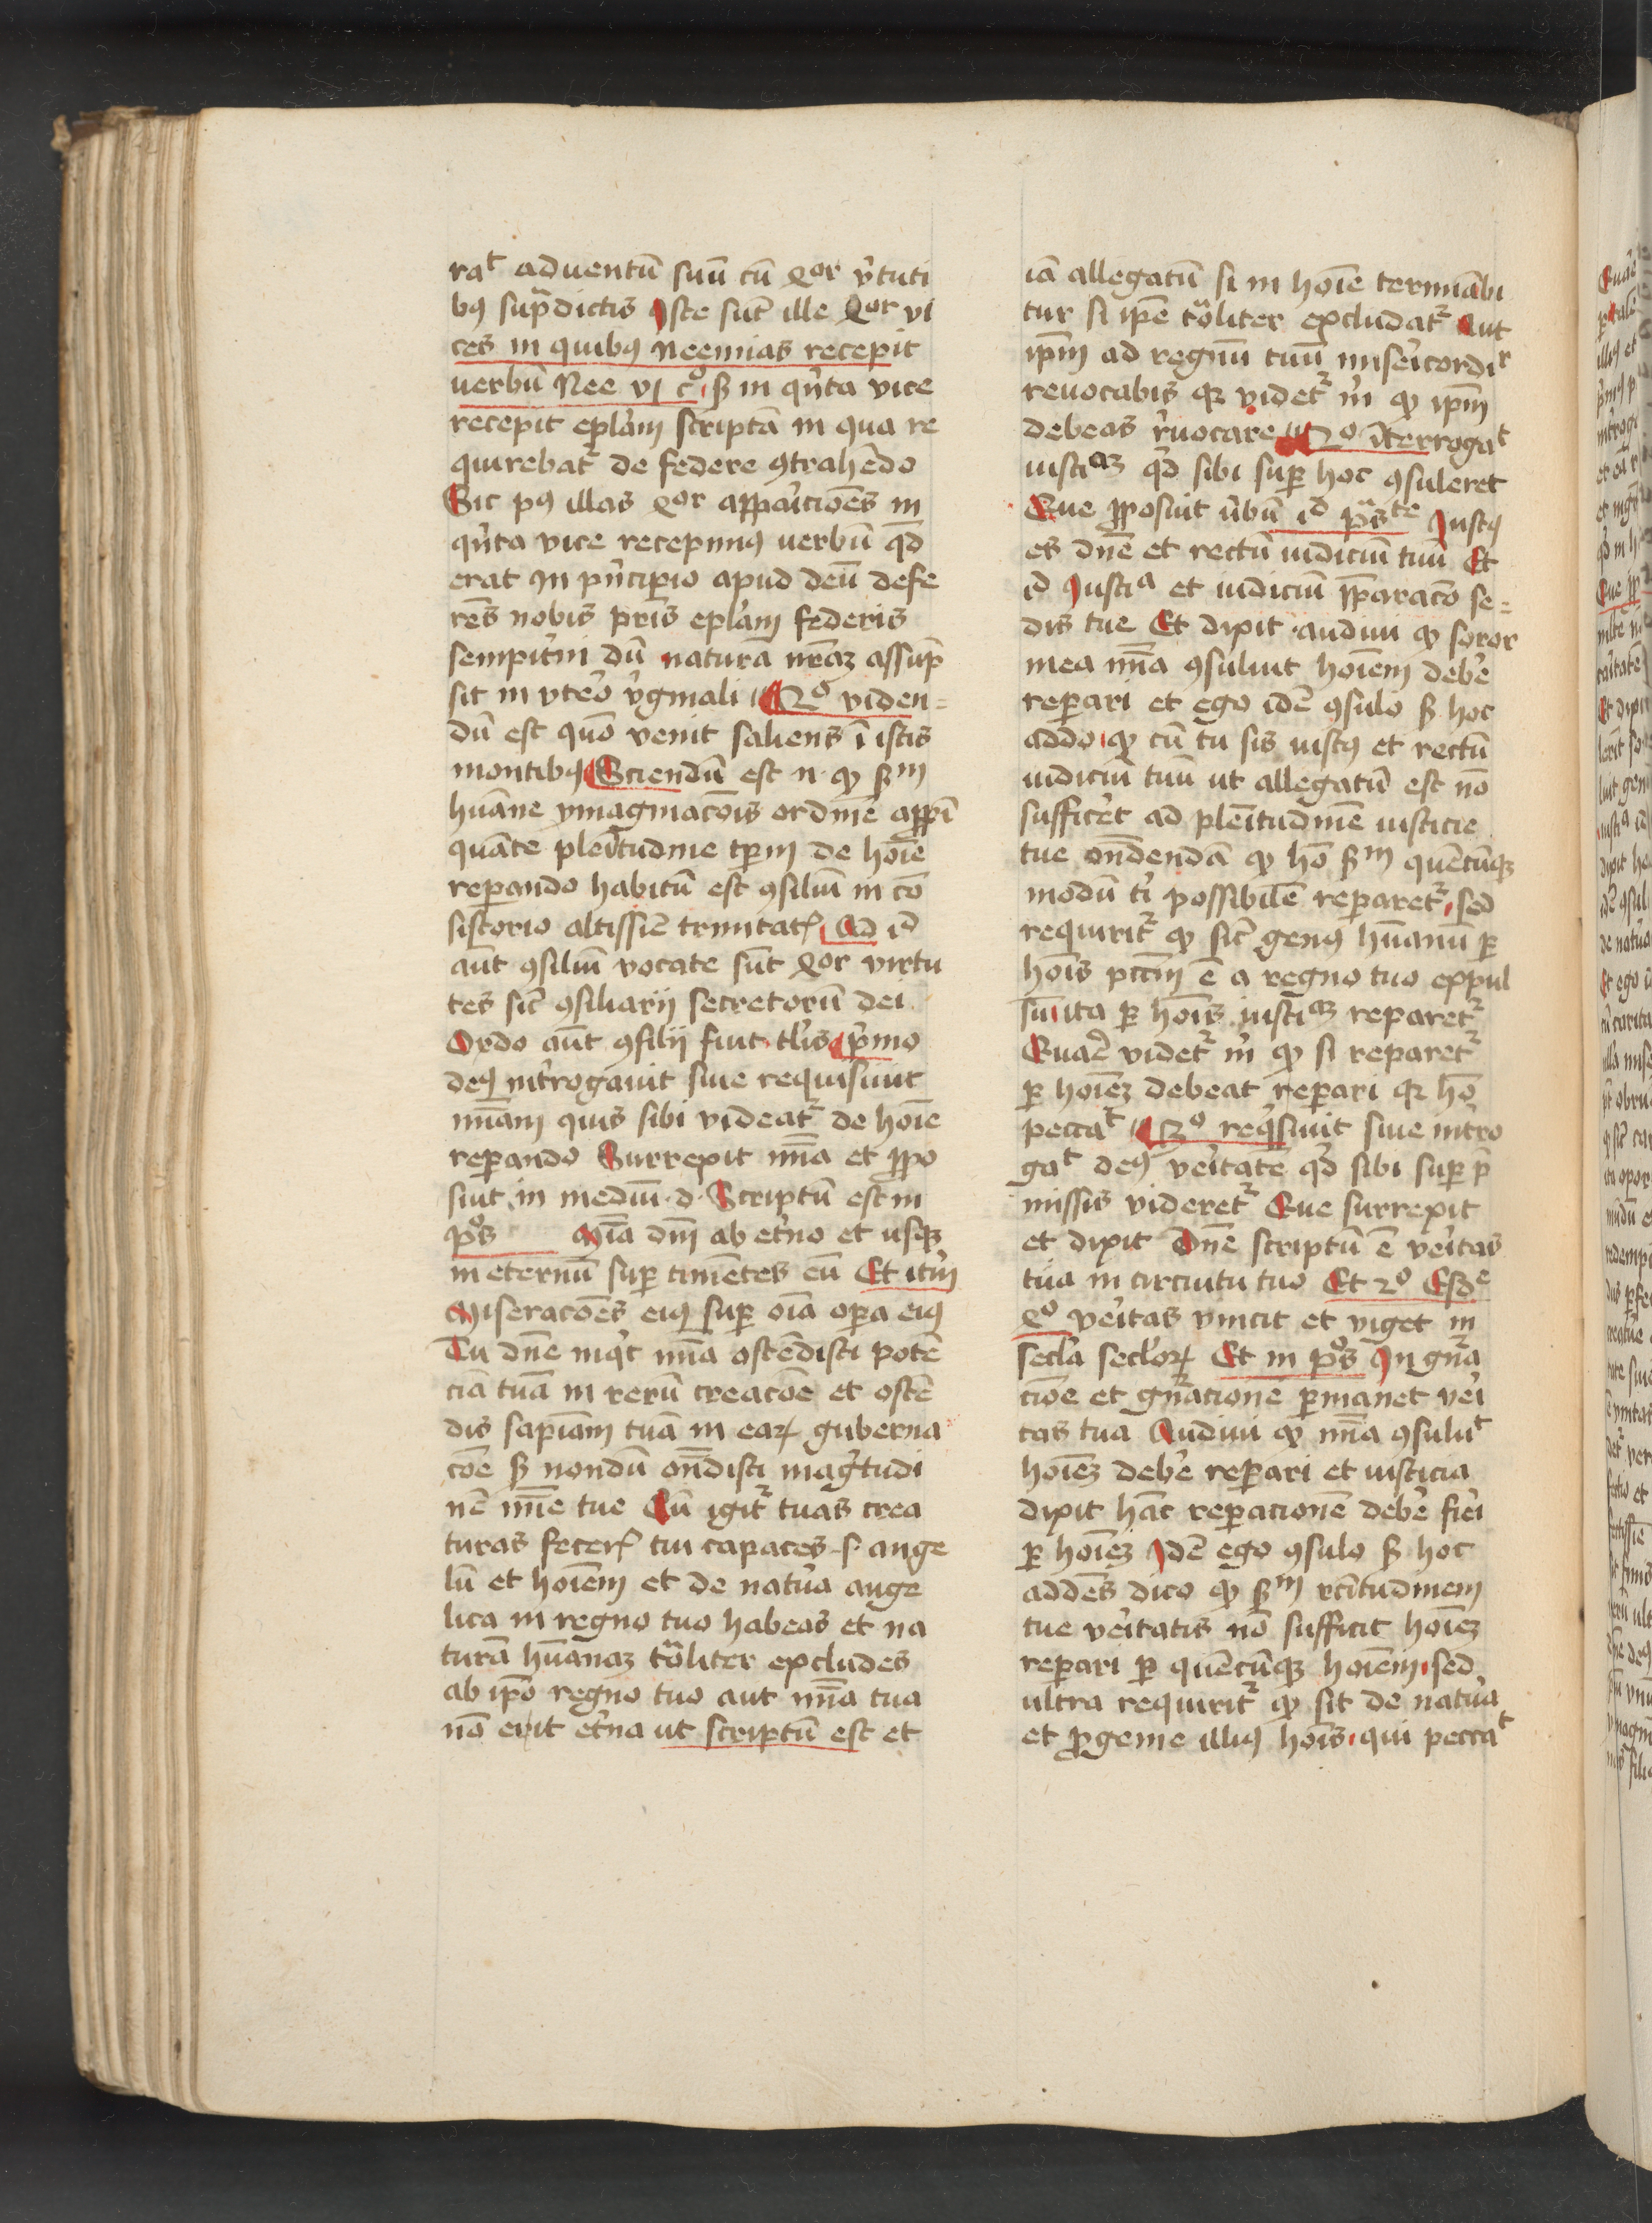 raͭ aduentū suū cū Qor v̾tuti
bꝫ sup̄dictis Iste sūt ille Qor vi
ces in quibꝫ Neemias recepit
verbū Nee vi c̊ sꝫ in qͥnta vice
recepit ep̄lam scriptā in qua re
quirebat᷑ de federe ꝯtrahēdo
Sic pꝰ illas Qor appaͥcioēs in
qͥnta vice recepimꝰ verbū qd̄
erat In pͥncipio apud deū defe
rēs nobis pr̄is ep̄lam federis
sempit̾ni dū natura nr̄aꝫ assūp
sit in vtero v̾ginali ¶ 2o viden=
dū est quō venit saliens ī istis
montibꝰ ¶ Sciendū est n. ꝙ sꝫm
hūane ymaginacōis ordinē app̄ī
quāte plēitudine tp̄m de hoīe
reꝑando habitū est ꝯsiliū in cō
sistorio altissīe trinitatꝭ Ad id
aūt ꝯsiliū vocate sūt Qor virtu
tes sic̄ ꝯsiliarij secretorū dei
Ordo aūt ꝯsilij fuit tl̾is pͥmo
deꝰ int̾rogauit siue requisiuit
mīam quis sibi videat᷑ de hoīe
reꝑando Surrexit mīa et ꝓpo
siut in mediū d. Scriptū est in
pͦs Mīa dn̄i ab et̾no et usqꝫ
in eternū suꝑ timētes eū Et itm̄
Miseracoēs eiꝰ suꝑ oīa oꝑa eiꝰ
Tu dn̄e inqͥt mīa ostēdisti potē
ciā tuā in rerū creacōe et ostē
dis sapīam tuā in eaꝝ guberna
cōe sꝫ nondū on̄disti magͥtudi
nē mīe tue Cū igit᷑ tuas crea
turas fecerꝭ tui capaces .s. ange
lū et hoīem et de natur̾a ange
lica in regno tuo habeas et na
turā hūanaꝫ tͣliter excludes
ab ip̄o regno tuo aut mīa tua
nō erit et̾na ut scriptū est et
iā allegatū si in hoīe terminabi
tur si ip̄e tͣliter excludat᷑ Aut
ip̄m ad regnū tuū misericordiͬ
reuocabis qꝛ videt᷑ m̄ ꝙ ip̄m
debeas r̾uocare ¶ 2o īterrogaͭ
iustiaꝫ qͥd sibi suꝑ hoc ꝯsuleret
Que ꝓposuit v̾bū id pͣsͭͤ Iustꝰ
es dn̄e et rectū iudiciū tuū Et
id Iustia et iudiciū p̄ꝑaracō se=
dis tue Et dixit audiui ꝙ soror
mea mīa ꝯsuluit hoīem deb̾e
reꝑari et ego idē ꝯsulo sꝫ hoc
addo ꝙ cū tu sis iustꝰ et rectū
iudiciū tuū ut allegatū est nō
suffic̾et ad plēitudinē iusticie
tue on̄dendā ꝙ hō sꝫm quēcūqꝫ
modū tͥ possibilē reparet᷑ sed
requirit᷑ ꝙ sic̄ genꝰ hūanū ꝑ
hoīs pccm̄ ē a regno tuo expul
sū ita ꝑ hoīs iustiaꝫ reparet᷑
Quare videt᷑ m̄ ꝙ si reparet᷑
ꝑ hoīeꝫ debeat reꝑari qꝛ hō
peccaͭ ¶ 3o reqͥsiuit siue int̾ro
gaͭ deꝰ ver̾itatē qͥd sibi suꝑ p̄
missis videret᷑ Que surrexit
et dixit Dn̄e scriptū ē ver̾itas
tua in circuitu tuo Et 2o Esdͤ
4o ver̾itas vincit et viget in
secl̾a secl̾oꝝ Et in pͦs In gn̄a
cioē et gn̄acione ꝑmanet ver̾i
tas tua Audiui ꝙ mīa ꝯsuluͭ
hoīeꝫ deb̾e reꝑari et iusticia
dixit hāc reꝑacionē deb̾e fier̾i
ꝑ hoīeꝫ Idē ego ꝯsulo sꝫ hoc
addēs dico ꝙ sꝫm rc̄itudinem
tue ver̾itatis nō sufficit hoīeꝫ
reꝑari ꝑ quēcūqꝫ hoīem sed
ultra requirit᷑ ꝙ sit de natur̾a
et ꝓgenie illiꝰ hoīs qui peccaͭ